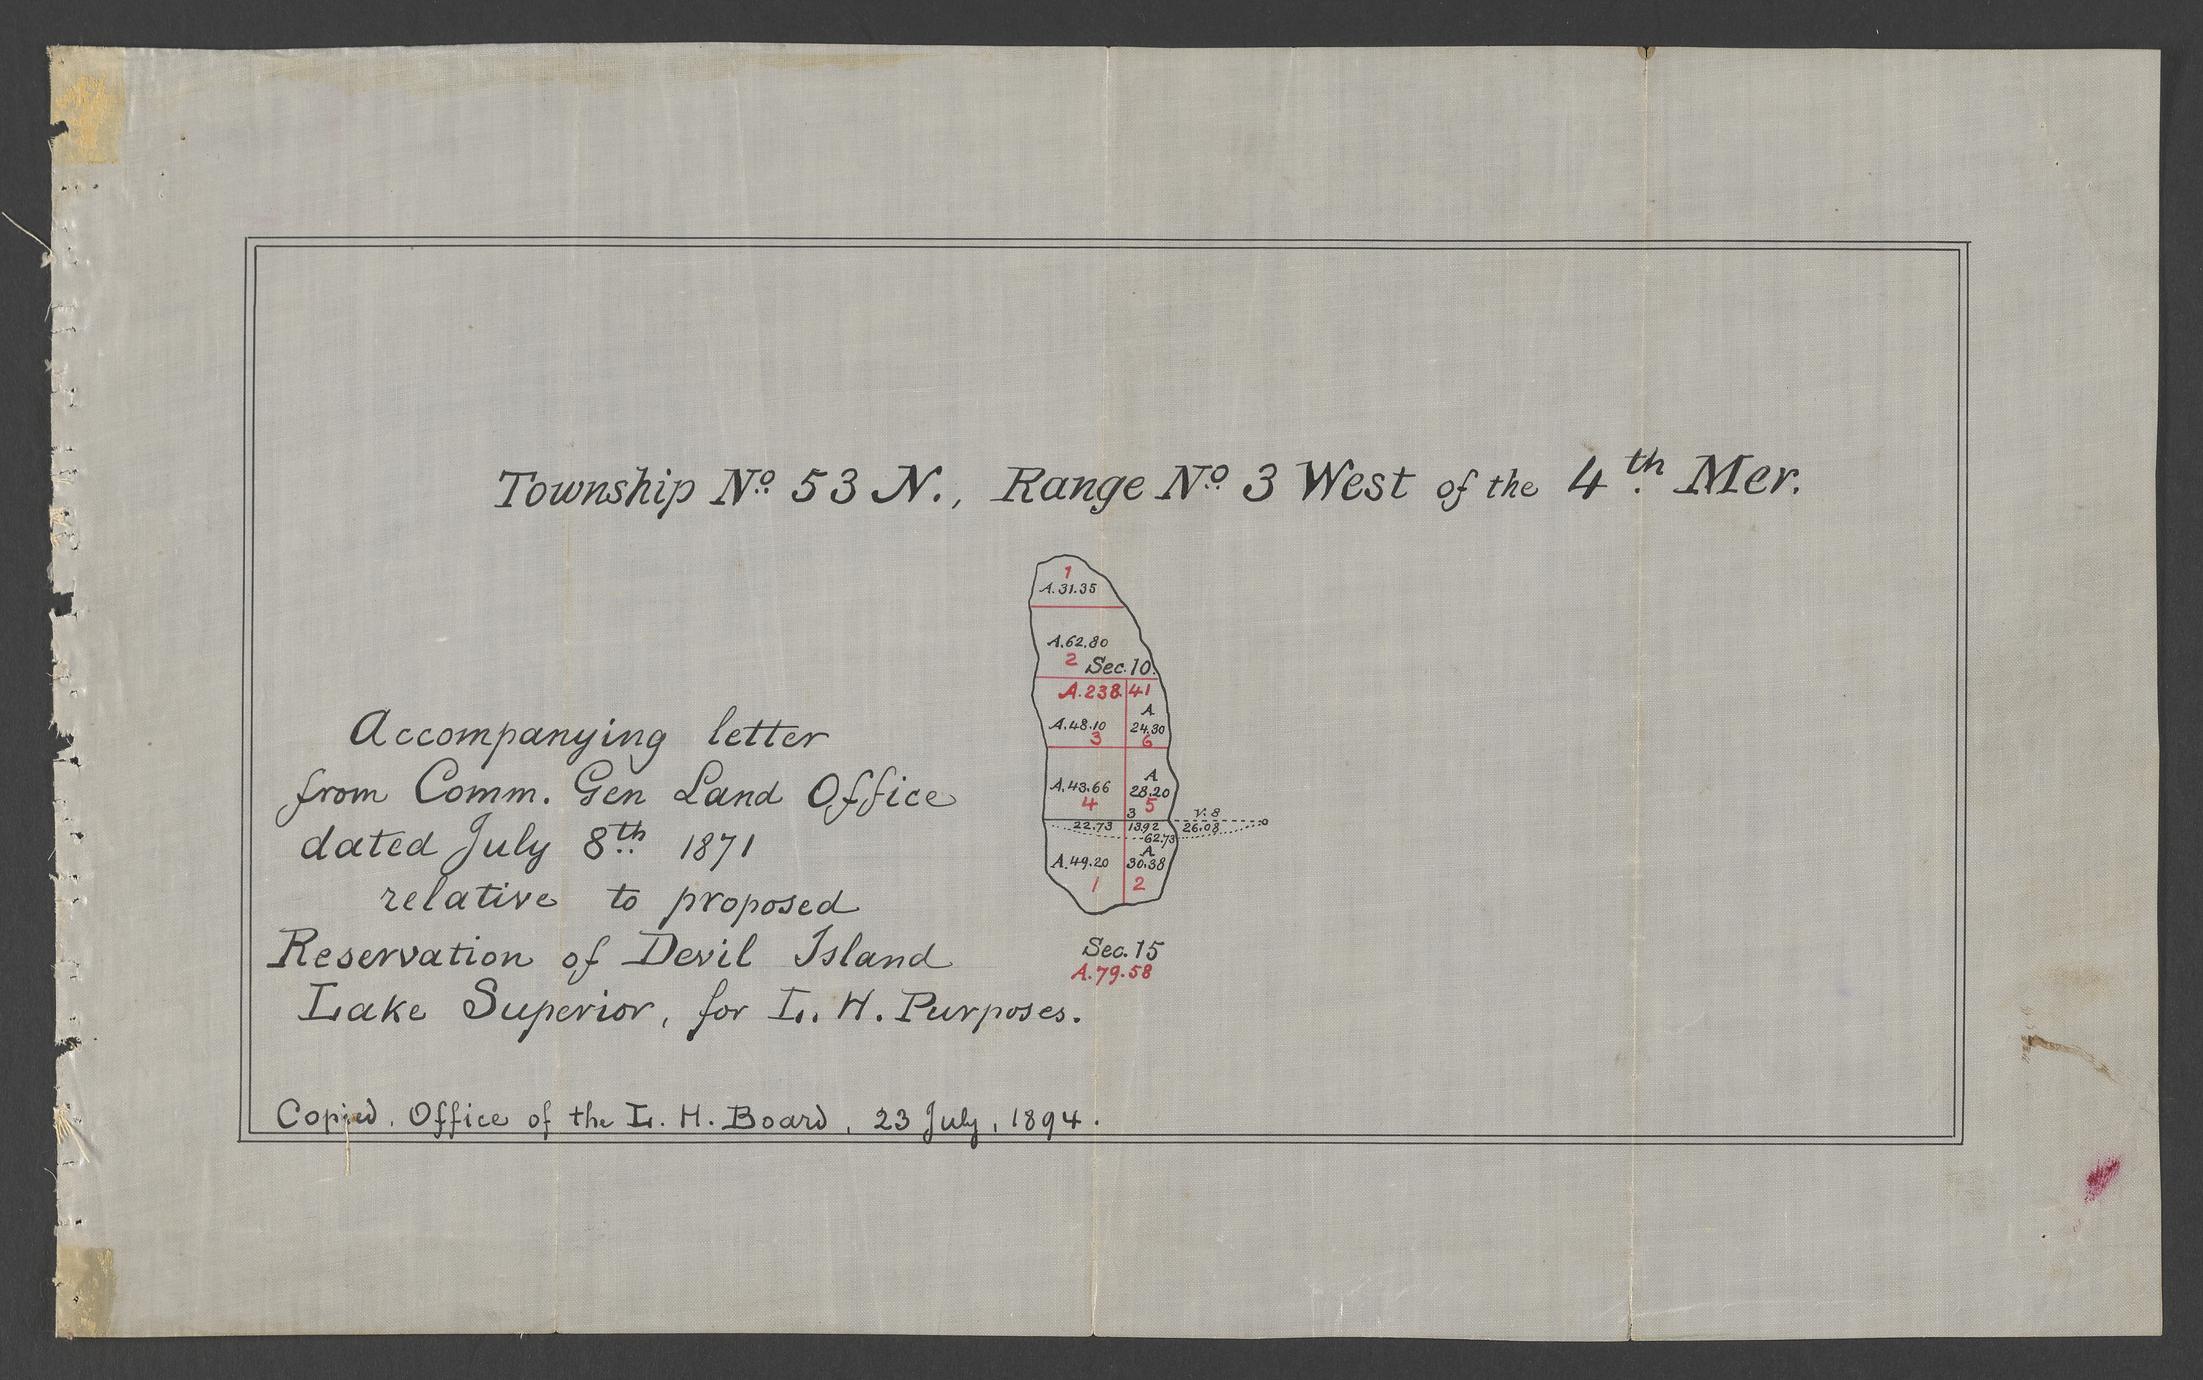 Township No. 53 N., Range No. 3 West of the 4th Mer.
1
A. 31.35
A. 62.80
2 Sec. 10.
A. 238.41
A. 48.10 A 24.30
3 6
A. 43.66 A 28.20
4 5
3 V. 8
22.73 13.92 26.08
62.73
A. 49.20 A 30.38
1 2
Sec. 15
A. 79.58
Accompanying letter
from Comm. Gen Land Office
dated July 8th 1871
relative to proposed
Reservation of Devil Island
Lake Superior, for L. H. Purposes.
Copied. Office of the L. H. Board, 23 July, 1894.